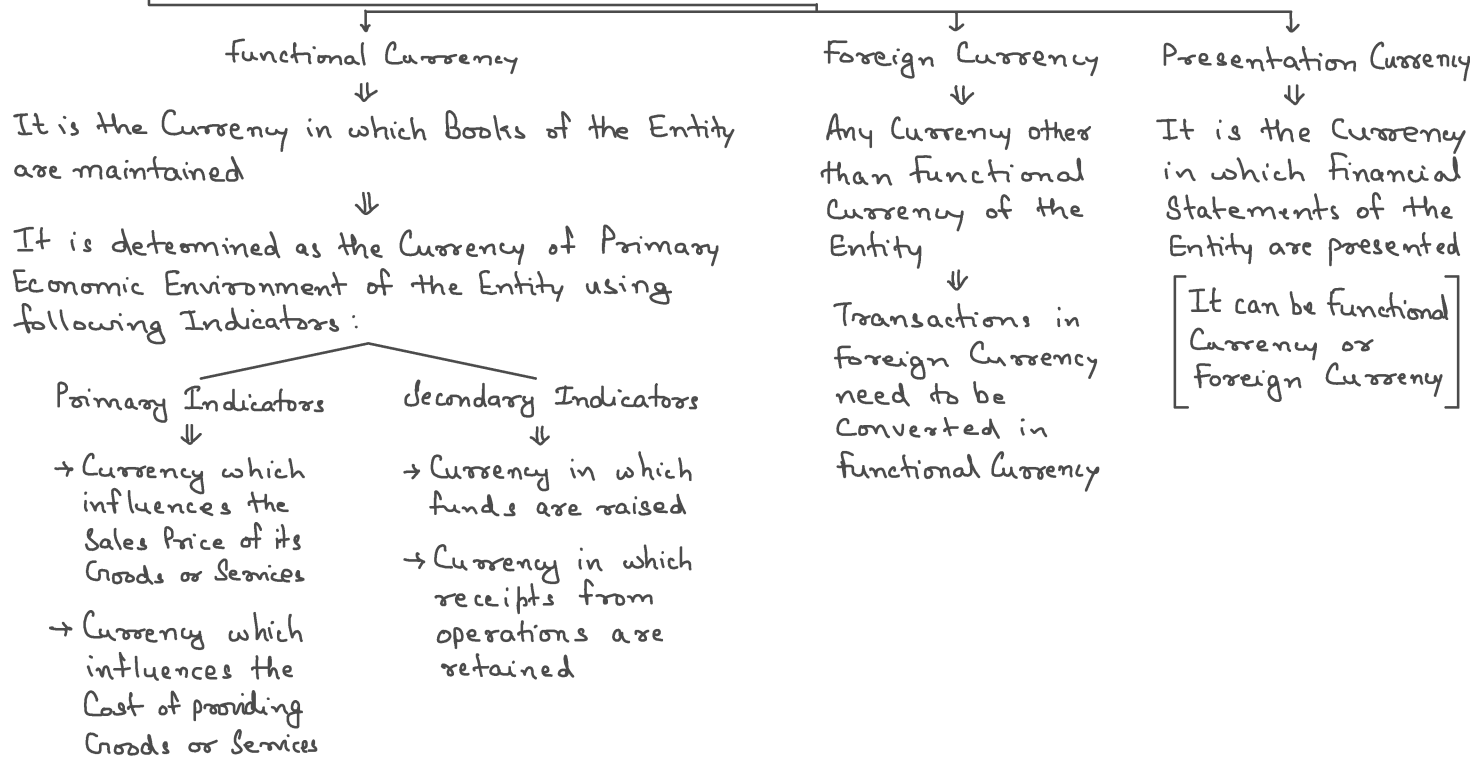 Functional Currency
It is the Currency in which Books of the Entity
are maintained
It is determined as the Currency of Primary
Economic Environment of the Entity using
following Indicators :
Primary Indicators
→ Currency which
influences the
Sales Price of its
Goods or Services
→ Currency which
influences the
Cost of providing
Goods or Services
Secondary Indicators
→ Currency in which
funds are raised
→ Currency in which
receipts from
operations are
retained
Foreign Currency
Any Currency other
than Functional
Currency of the
Entity
Transactions in
Foreign Currency
need to be
Converted in
Functional Currency
Presentation Currency
It is the Currency
in which Financial
Statements of the
Entity are presented
[It can be Functional
Currency or
Foreign Currency]